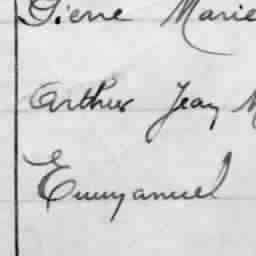 Pierre Marie
Arthur Jean M
Emmanuel